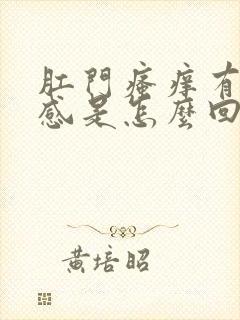 肛門瘙痒有
感是怎麼回
黃培昭